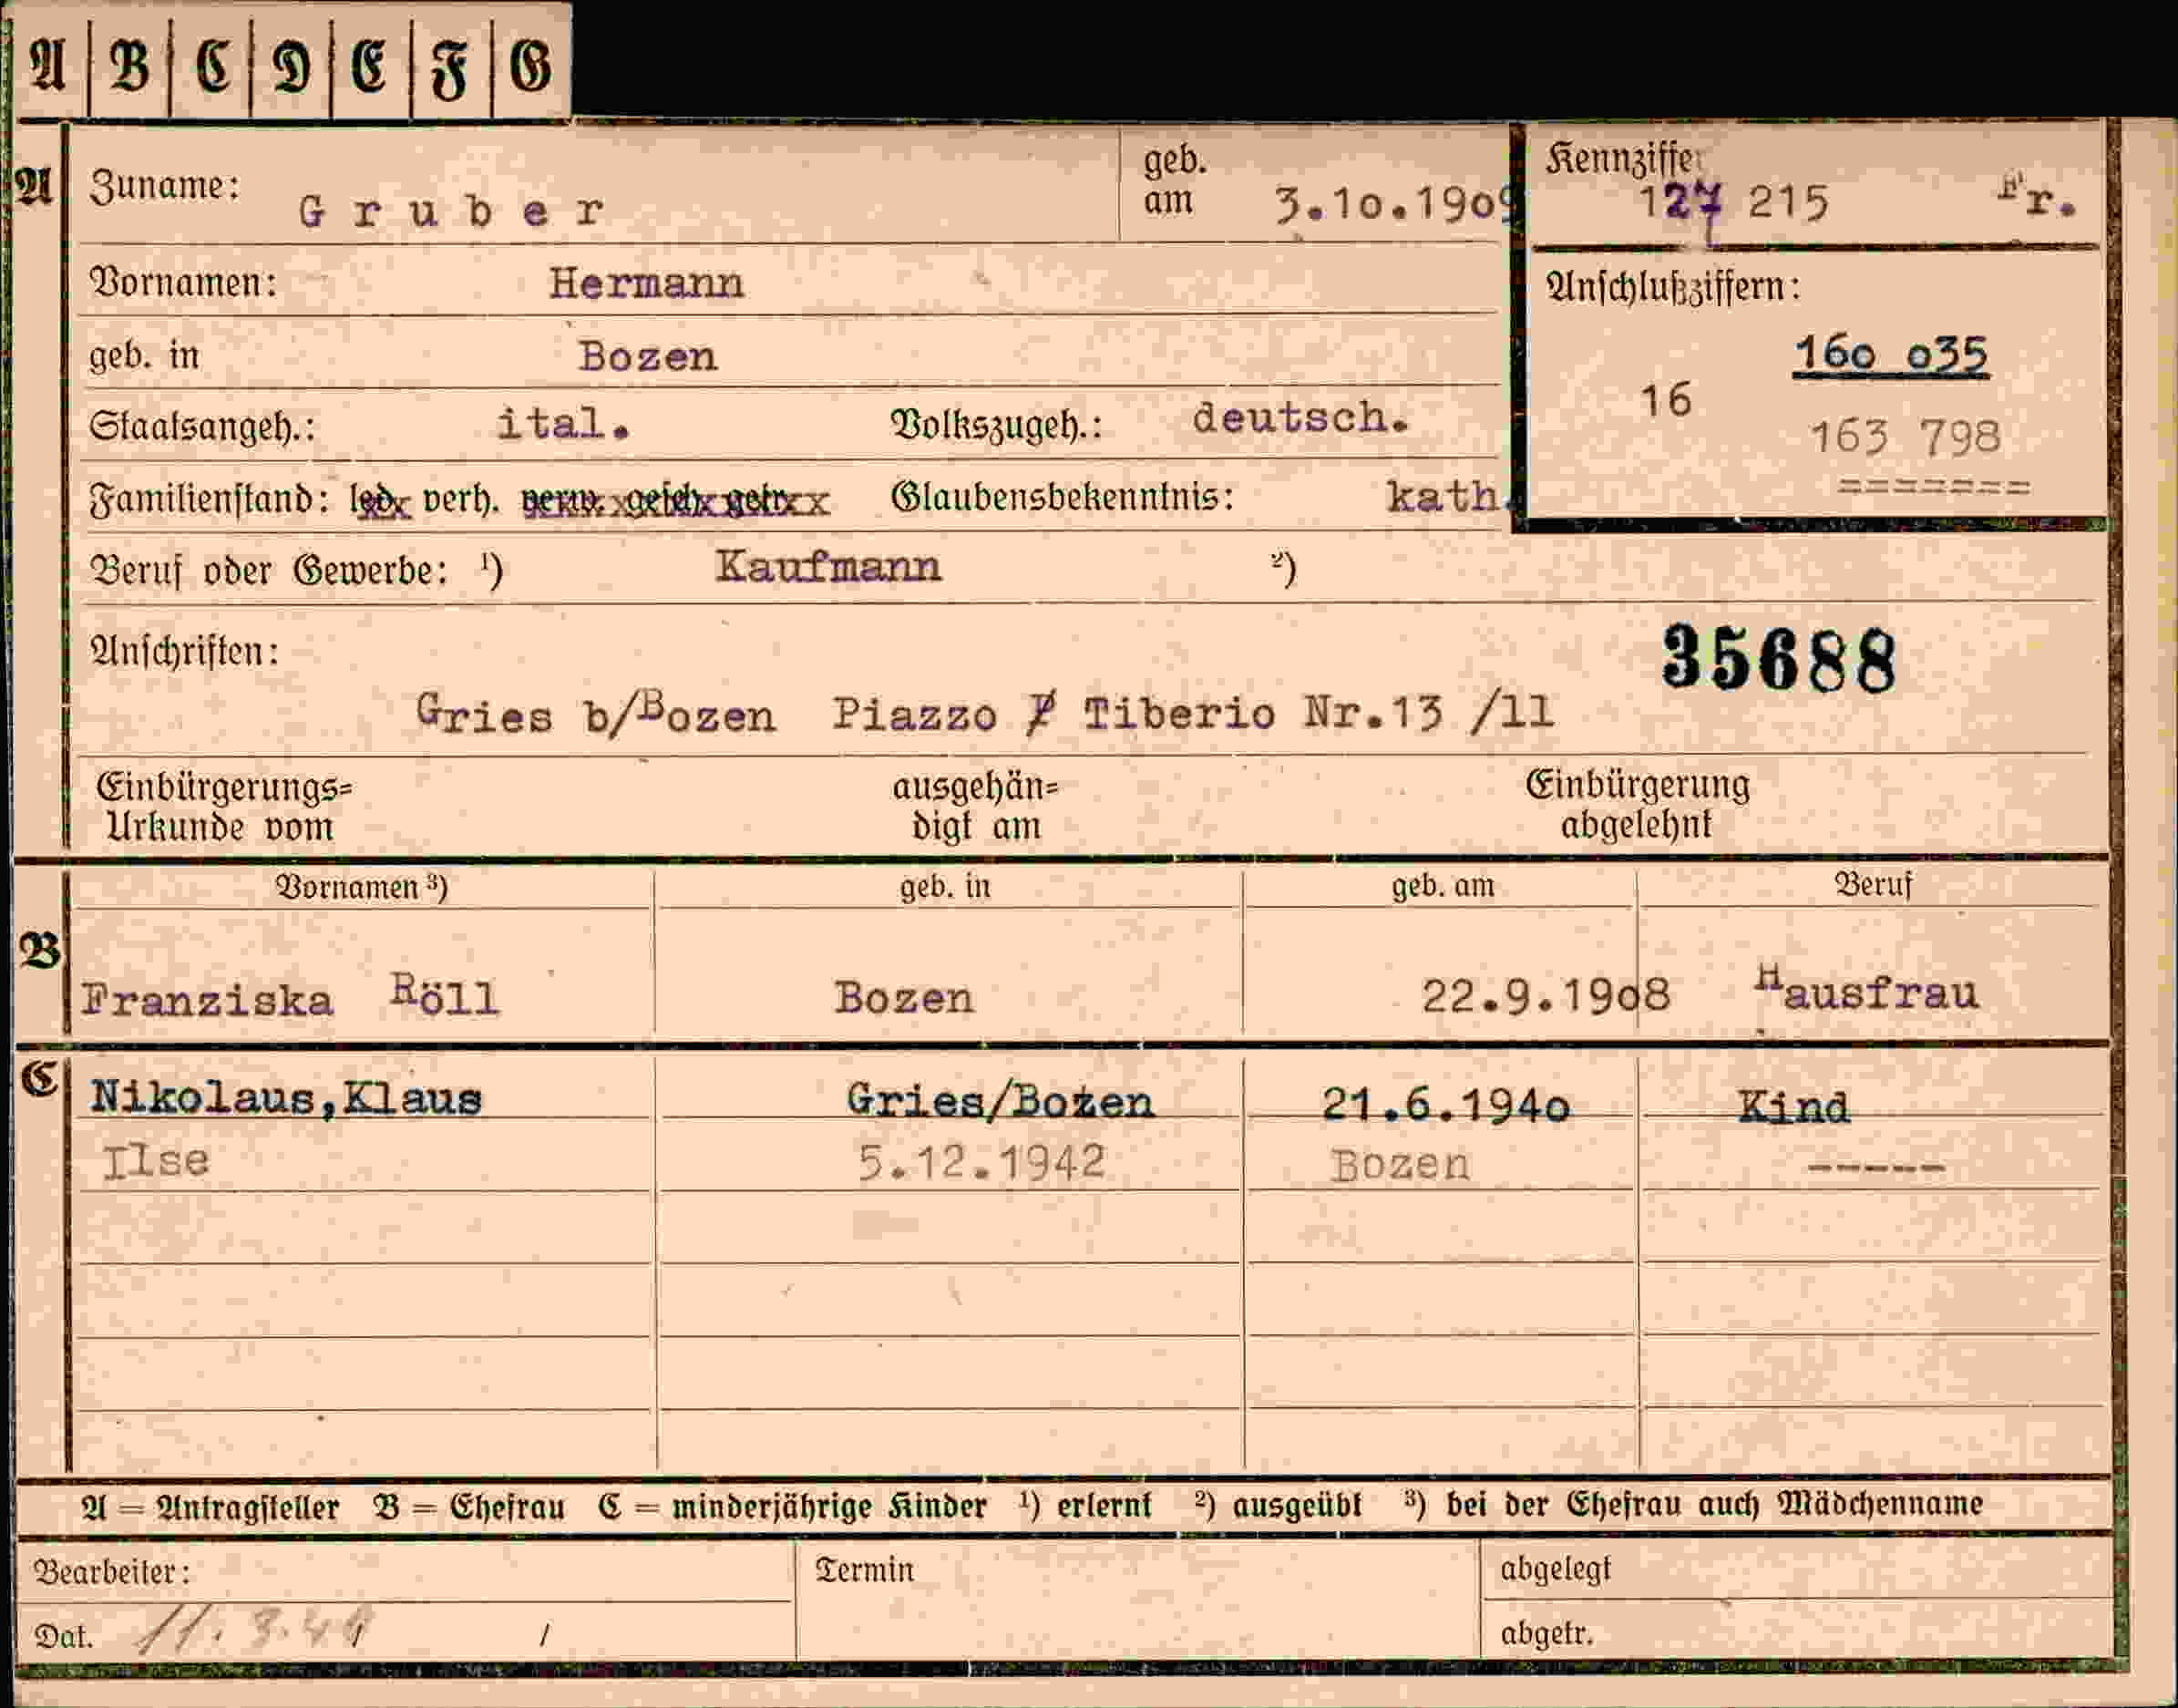 A | B | C | D | E | F | G
A Zuname: Gruber geb. am 3.10.1909
Kennziffer 127 215 Fr.
Vornamen: Hermann
geb. in Bozen
Staatsangeh.: ital. Volkszugeh.: deutsch.
Familienstand: led. verh. verw. gesch. getr. Glaubensbekenntnis: kath.
Anschlußziffern:
160 035
16
163 798
=======
Beruf oder Gewerbe: ¹) Kaufmann ²)
Anschriften:
35688
Gries b/Bozen Piazzo P Tiberio Nr.13 /11
Einbürgerungs=
Urkunde vom
ausgehän=
digt am
Einbürgerung
abgelehnt
Vornamen ³) geb. in geb. am Beruf
B Franziska Röll Bozen 22.9.1908 Hausfrau
C Nikolaus,Klaus Gries/Bozen 21.6.1940 Kind
Ilse 5.12.1942 Bozen -----
A = Antragsteller B = Ehefrau C = minderjährige Kinder ¹) erlernt ²) ausgeübt ³) bei der Ehefrau auch Mädchenname
Bearbeiter: Termin abgelegt
Dat. / abgetr.